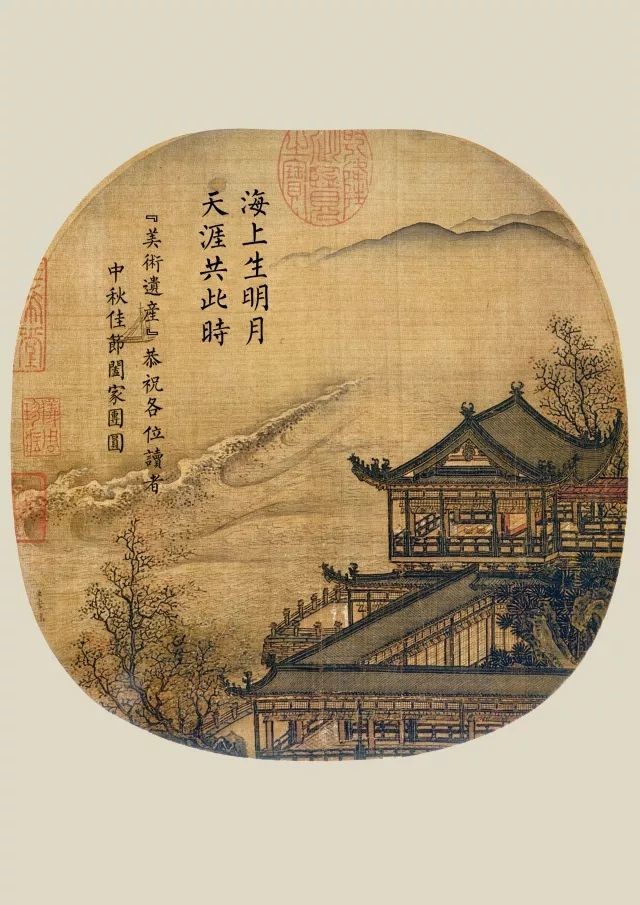 海上生明月
天涯共此時
『美術遺產』恭祝各位讀者
中秋佳節闔家團圓